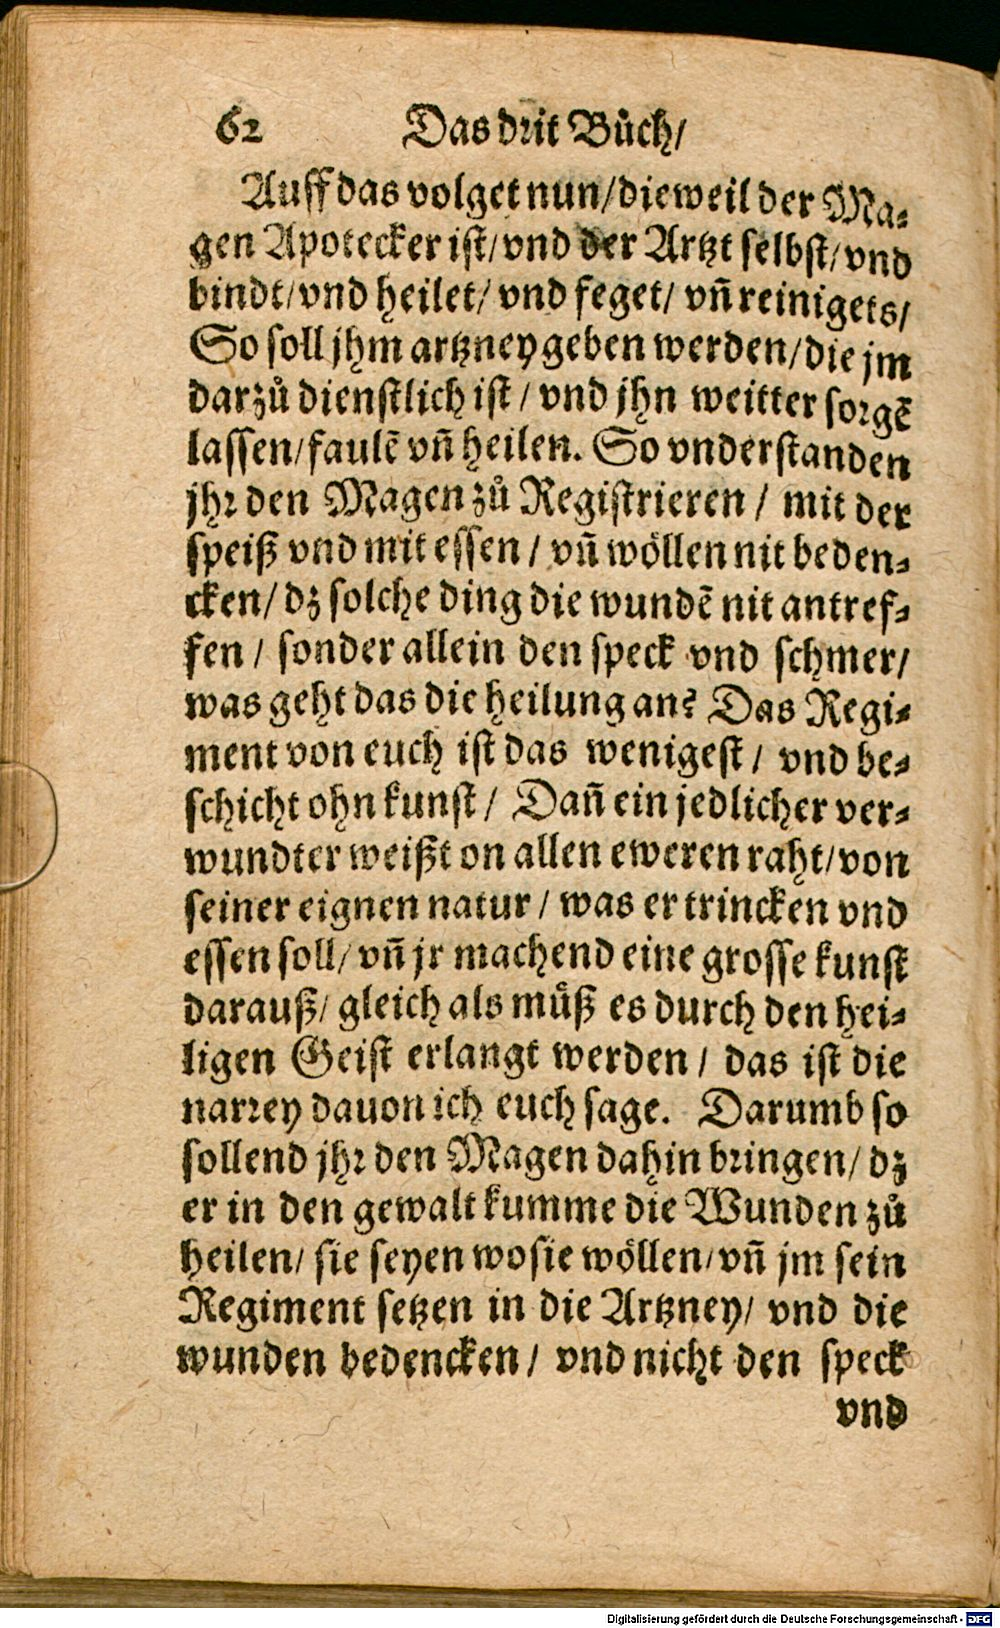 62 Das drit Bůch/
Auff das volget nun/dieweil der Ma⸗
gen Apotecker ist/vnd der Artzt selbst/vnd
bindt/vnd heilet/ vnd feget/ vñ reinigets/
So soll jhm artzney geben werden/die jm
darzů dienstlich ist/ vnd jhn weitter sorgẽ
lassen/faulẽ vñ heilen. So vnderstanden
jhr den Magen zů Registrieren/ mit der
speiß vnd mit essen/ vñ wöllen nit beden⸗
cken/ dz solche ding die wundẽ nit antref⸗
fen/ sonder allein den speck vnd schmer/
was geht das die heilung an? Das Regi⸗
ment von euch ist das wenigest/ vnd be⸗
schicht ohn kunst/ Dañ ein jedlicher ver⸗
wundter weißt on allen eweren raht/von
seiner eignen natur/ was er trincken vnd
essen soll/ vñ jr machend eine grosse kunst
darauß/ gleich als můß es durch den hei⸗
ligen Geist erlangt werden/ das ist die
narrey dauon ich euch sage. Darumb so
sollend jhr den Magen dahin bringen/ dz
er in den gewalt kumme die Wunden zů
heilen/ sie seyen wo sie wöllen/vñ jm sein
Regiment setzen in die Artzney/ vnd die
wunden bedencken/ vnd nicht den speck
vnd
Digitalisierung gefördert durch die Deutsche Forschungsgemeinschaft - DFG